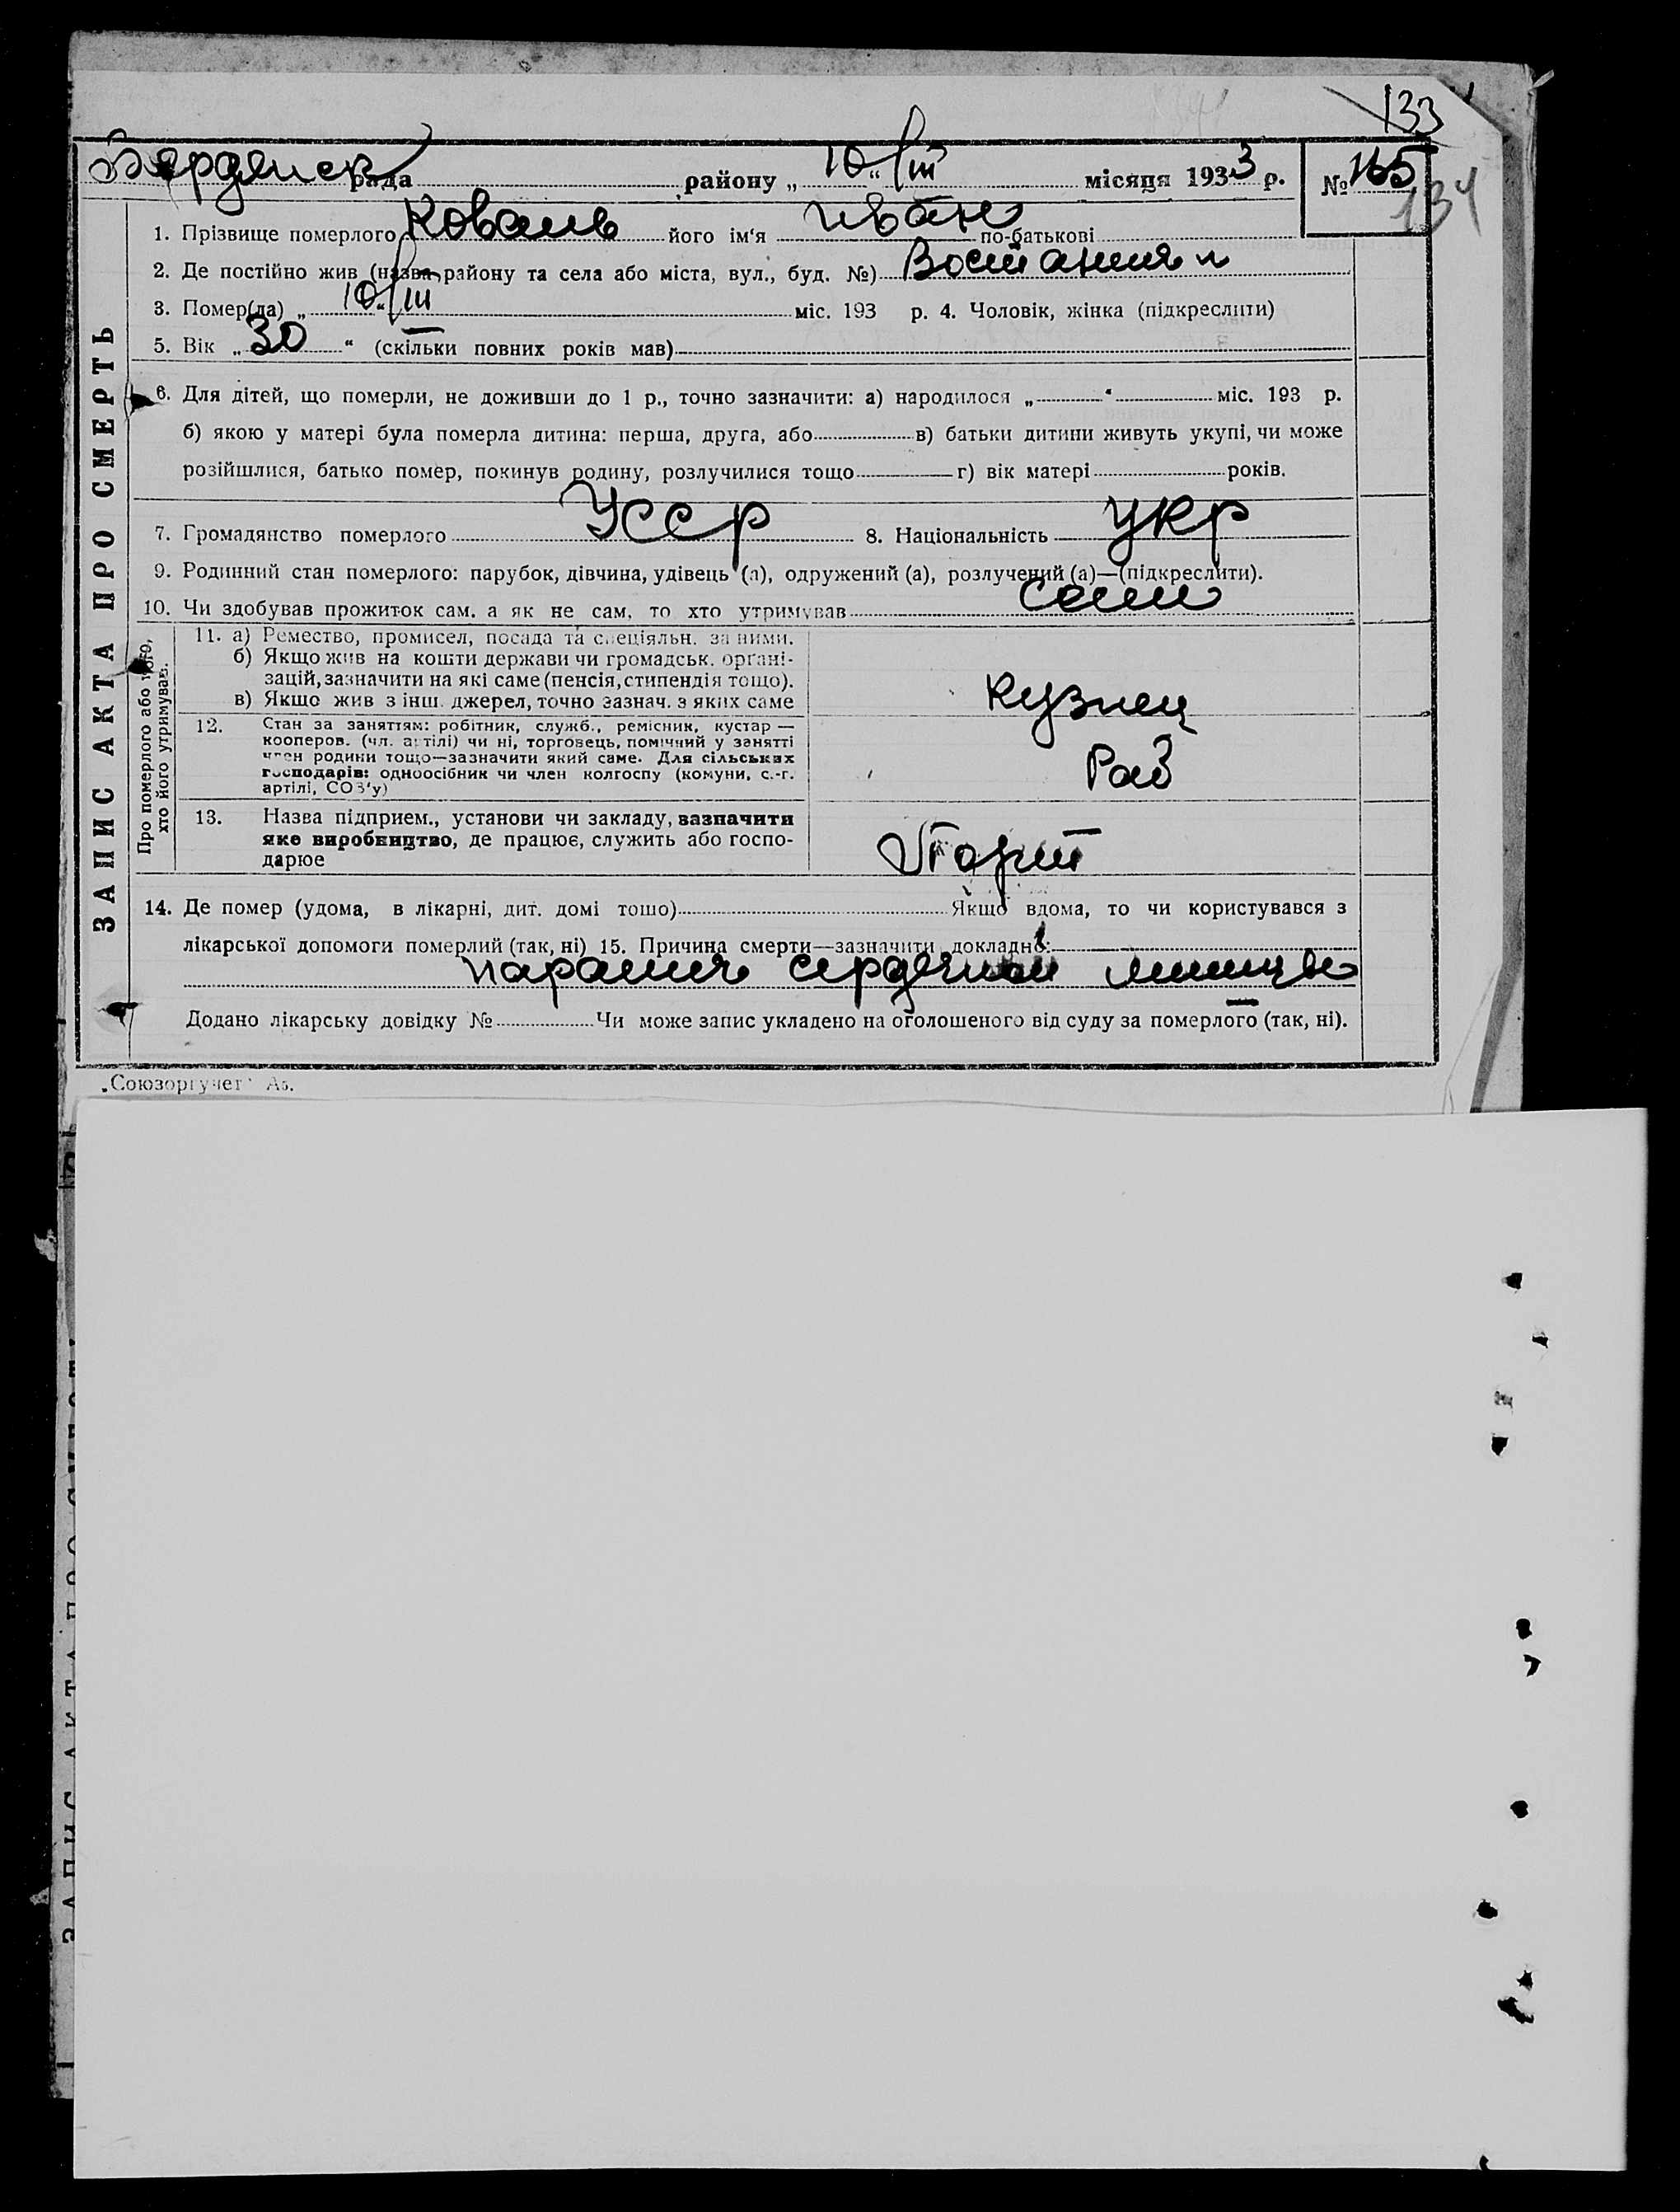 133
Бердянск рада району „ 10 “ /III місяця 1933 р. № 165
134
1. Прізвище померлого Коваль його ім'я Иван по-батькові
2. Де постійно жив (назва району та села або міста, вул., буд. №)
3. Помер(ла) „ 10 “ /III міс. 193 р. 4. Чоловік, жінка (підкреслити)
5. Вік „ 30 “ (скільки повних років мав)
6. Для дітей, що померли, не доживши до 1 р., точно зазначити: а) народилося „ “ міс. 193 р.
б) якою у матері була померла дитина: перша, друга, або в) батьки дитини живуть укупі, чи може
розійшлися, батько помер, покинув родину, розлучилися тощо г) вік матері років.
7. Громадянство померлого УССР 8. Національність укр
9. Родинний стан померлого: парубок, дівчина, удівець (а), одружений (а), розлучений (а)—(підкреслити).
10. Чи здобував прожиток сам, а як не сам, то хто утримував сам
ЗАПИС АКТА ПРО СМЕРТЬ
Про померлого або того,
хто його утримував.
11. а) Ремество, промисел, посада та спеціяльн. за ними.
б) Якщо жив на кошти держави чи громадськ. органі-
зацій, зазначити на які саме (пенсія, стипендія тощо).
в) Якщо жив з інш. джерел, точно зазнач. з яких саме
кузнец
12. Стан за заняттям: робітник, служб., ремісник, кустар —
кооперов. (чл. артілі) чи ні, торговець, помічний у занятті
член родини тощо—зазначити який саме. Для сільських
господарів: одноосібник чи член колгоспу (комуни, с.-г.
артілі, СОЗ'у)
Раб
13. Назва підприєм., установи чи закладу, зазначити
яке виробництво, де працює, служить або госпо-
дарює
14. Де помер (удома, в лікарні, дит. домі тощо) Якщо вдома, то чи користувався з
лікарської допомоги померлий (так, ні) 15. Причина смерти—зазначити докладно:
паралич сердечной мышцы
Додано лікарську довідку № Чи може запис укладено на оголошеного від суду за померлого (так, ні).
„Союзоргучет“ А5.
ЗАПИС АКТА ПРО СМЕРТЬ